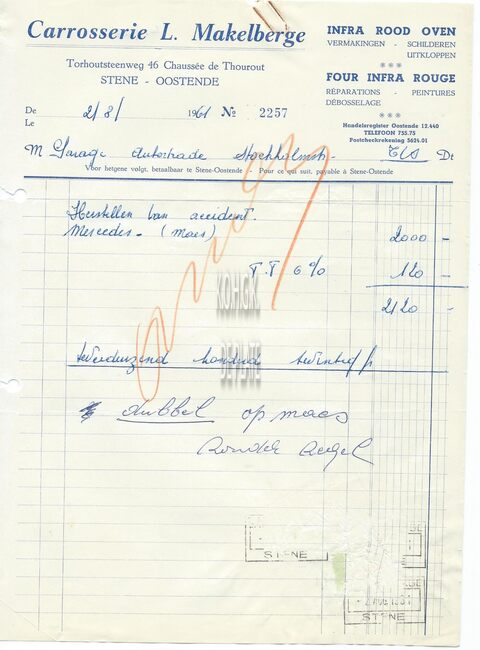 Carrosserie L. Makelberge
Torhoutsteenweg 46 Chaussée de Thourout
STENE - OOSTENDE
INFRA ROOD OVEN
VERMAKINGEN - SCHILDEREN
UITKLOPPEN
FOUR INFRA ROUGE
RÉPARATIONS - PEINTURES
DÉBOSSELAGE
Handelsregister Oostende 12.440
TELEFOON 755.75
Postcheckrekening 5624.01
De
Le 2/8/ 1961 No 2257
M Garage Autostrade Dt
Voor hetgene volgt, betaalbaar te Stene-Oostende - Pour ce qui suit, payable à Stene-Ostende
Herstellen van accident.
Mercedes - (Maes) 2000 -
T.T 6% 120 -
2120 -
tweeduizend honderd twintig fr
dubbel op maes
KOHGK
DEPLATE
STENE
STENE